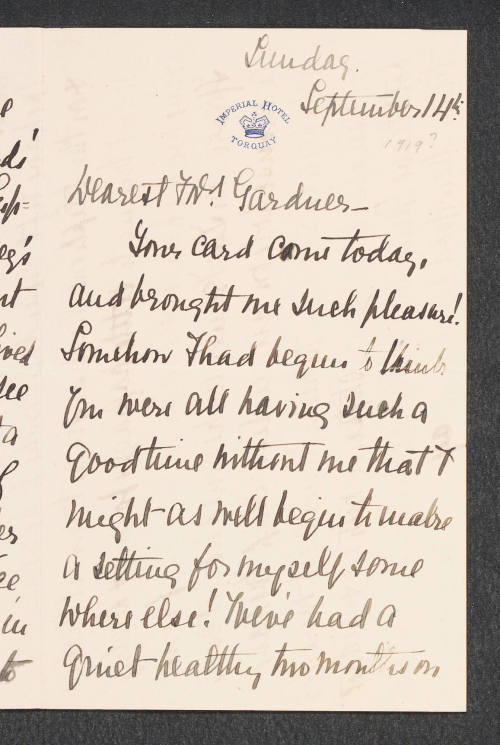 Sunday.
September 14th
IMPERIAL HOTEL
TORQUAY
1919?
Dearest Mrs. Gardner—
Your card came today,
and brought me such pleasure!
Somehow I had begun to think
you were all having such a
good time without me that I
might as well begin to make
a setting for myself some
where else! We've had a
quiet healthy two months on